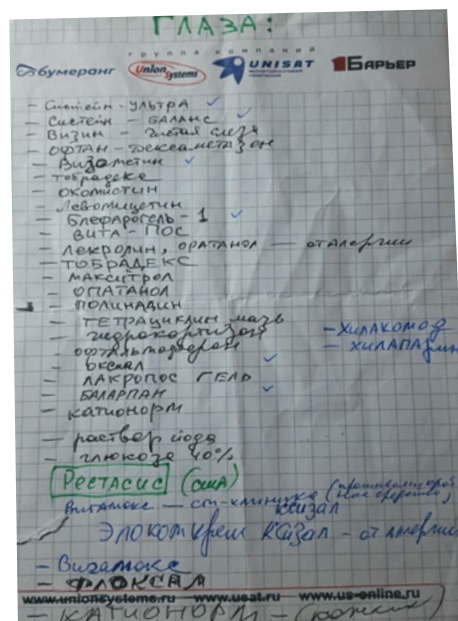 ГЛАЗА:
группа компаний
бумеранг Union Systems UNISAT БАРЬЕР
- Систейн - УЛЬТРА ✓
- Систейн - БАЛАНС ✓
- Визин - чистая слеза
- ОФТАН - Дексаметазон
- Визометин ✓
- тобрадекс
- окомистин
- Левомицетин
- Блефарогель - 1 ✓
- ВИТА - ПОС
- Лекролин, опатанол - от алергии
- ТОБРАДЕКС
- МАКСИТРОЛ
- ОПАТАНОЛ
- ПОЛИНАДИН
- ТЕТРАЦИКЛИН мазь
- гидрокортизон - ХИЛАКОМОД
- офтальмоферон - ХИЛАПАРИН
- Окснал ✓
- ЛАКРОПОС ГЕЛЬ
- БАЛАРПАН ✓
- катионорм
- раствор йода
- глюкоза 40%
РЕСТАСИС (США)
Витамокс
Элоком крем Ксизал - от алергии
- Вигамокс
- ФЛОКСАЛ
www.unionsystems.ru www.usat.ru www.us-online.ru
- КАТИОНОРМ -